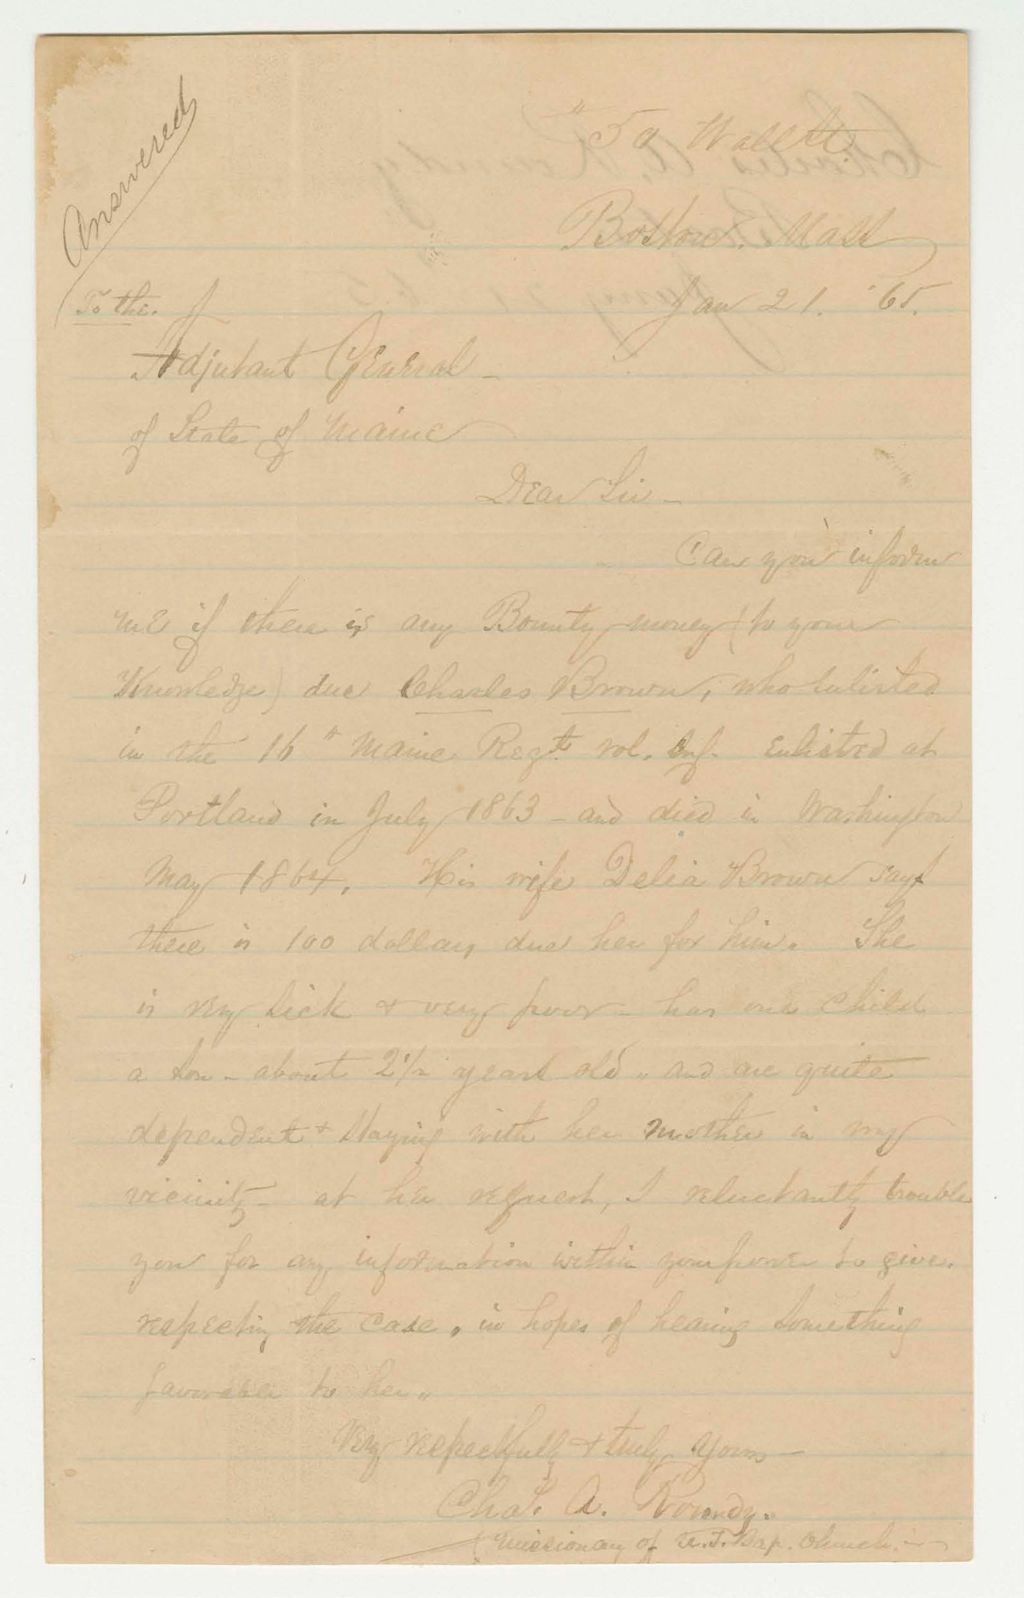 Answered
59 Wall St.
Boston. Mass
Jan 21. '65.
To the.
Adjutant General
of State of Maine
Dear Sir
Can you inform
me if there is any Bounty money (to your
Knowledge) due Charles Brown, who enlisted
in the 16" Maine Regt. vol. Inf. Enlisted at
Portland in July 1863 - and died in Washington
May 1864. His wife Delia Brown says
there is 100 dollars due her for him. She
is very sick & very poor - has one child
a son - about 2 1/2 years old, and are quite
dependent & staying with her mother in my
vicinity - at her request, I reluctantly trouble
you for any information within your power to give.
respecting the case, in hopes of hearing something
favorable to her.
Very respectfully & truly yours -
Chas. A. Roundy.
Missionary of Bap. Church.